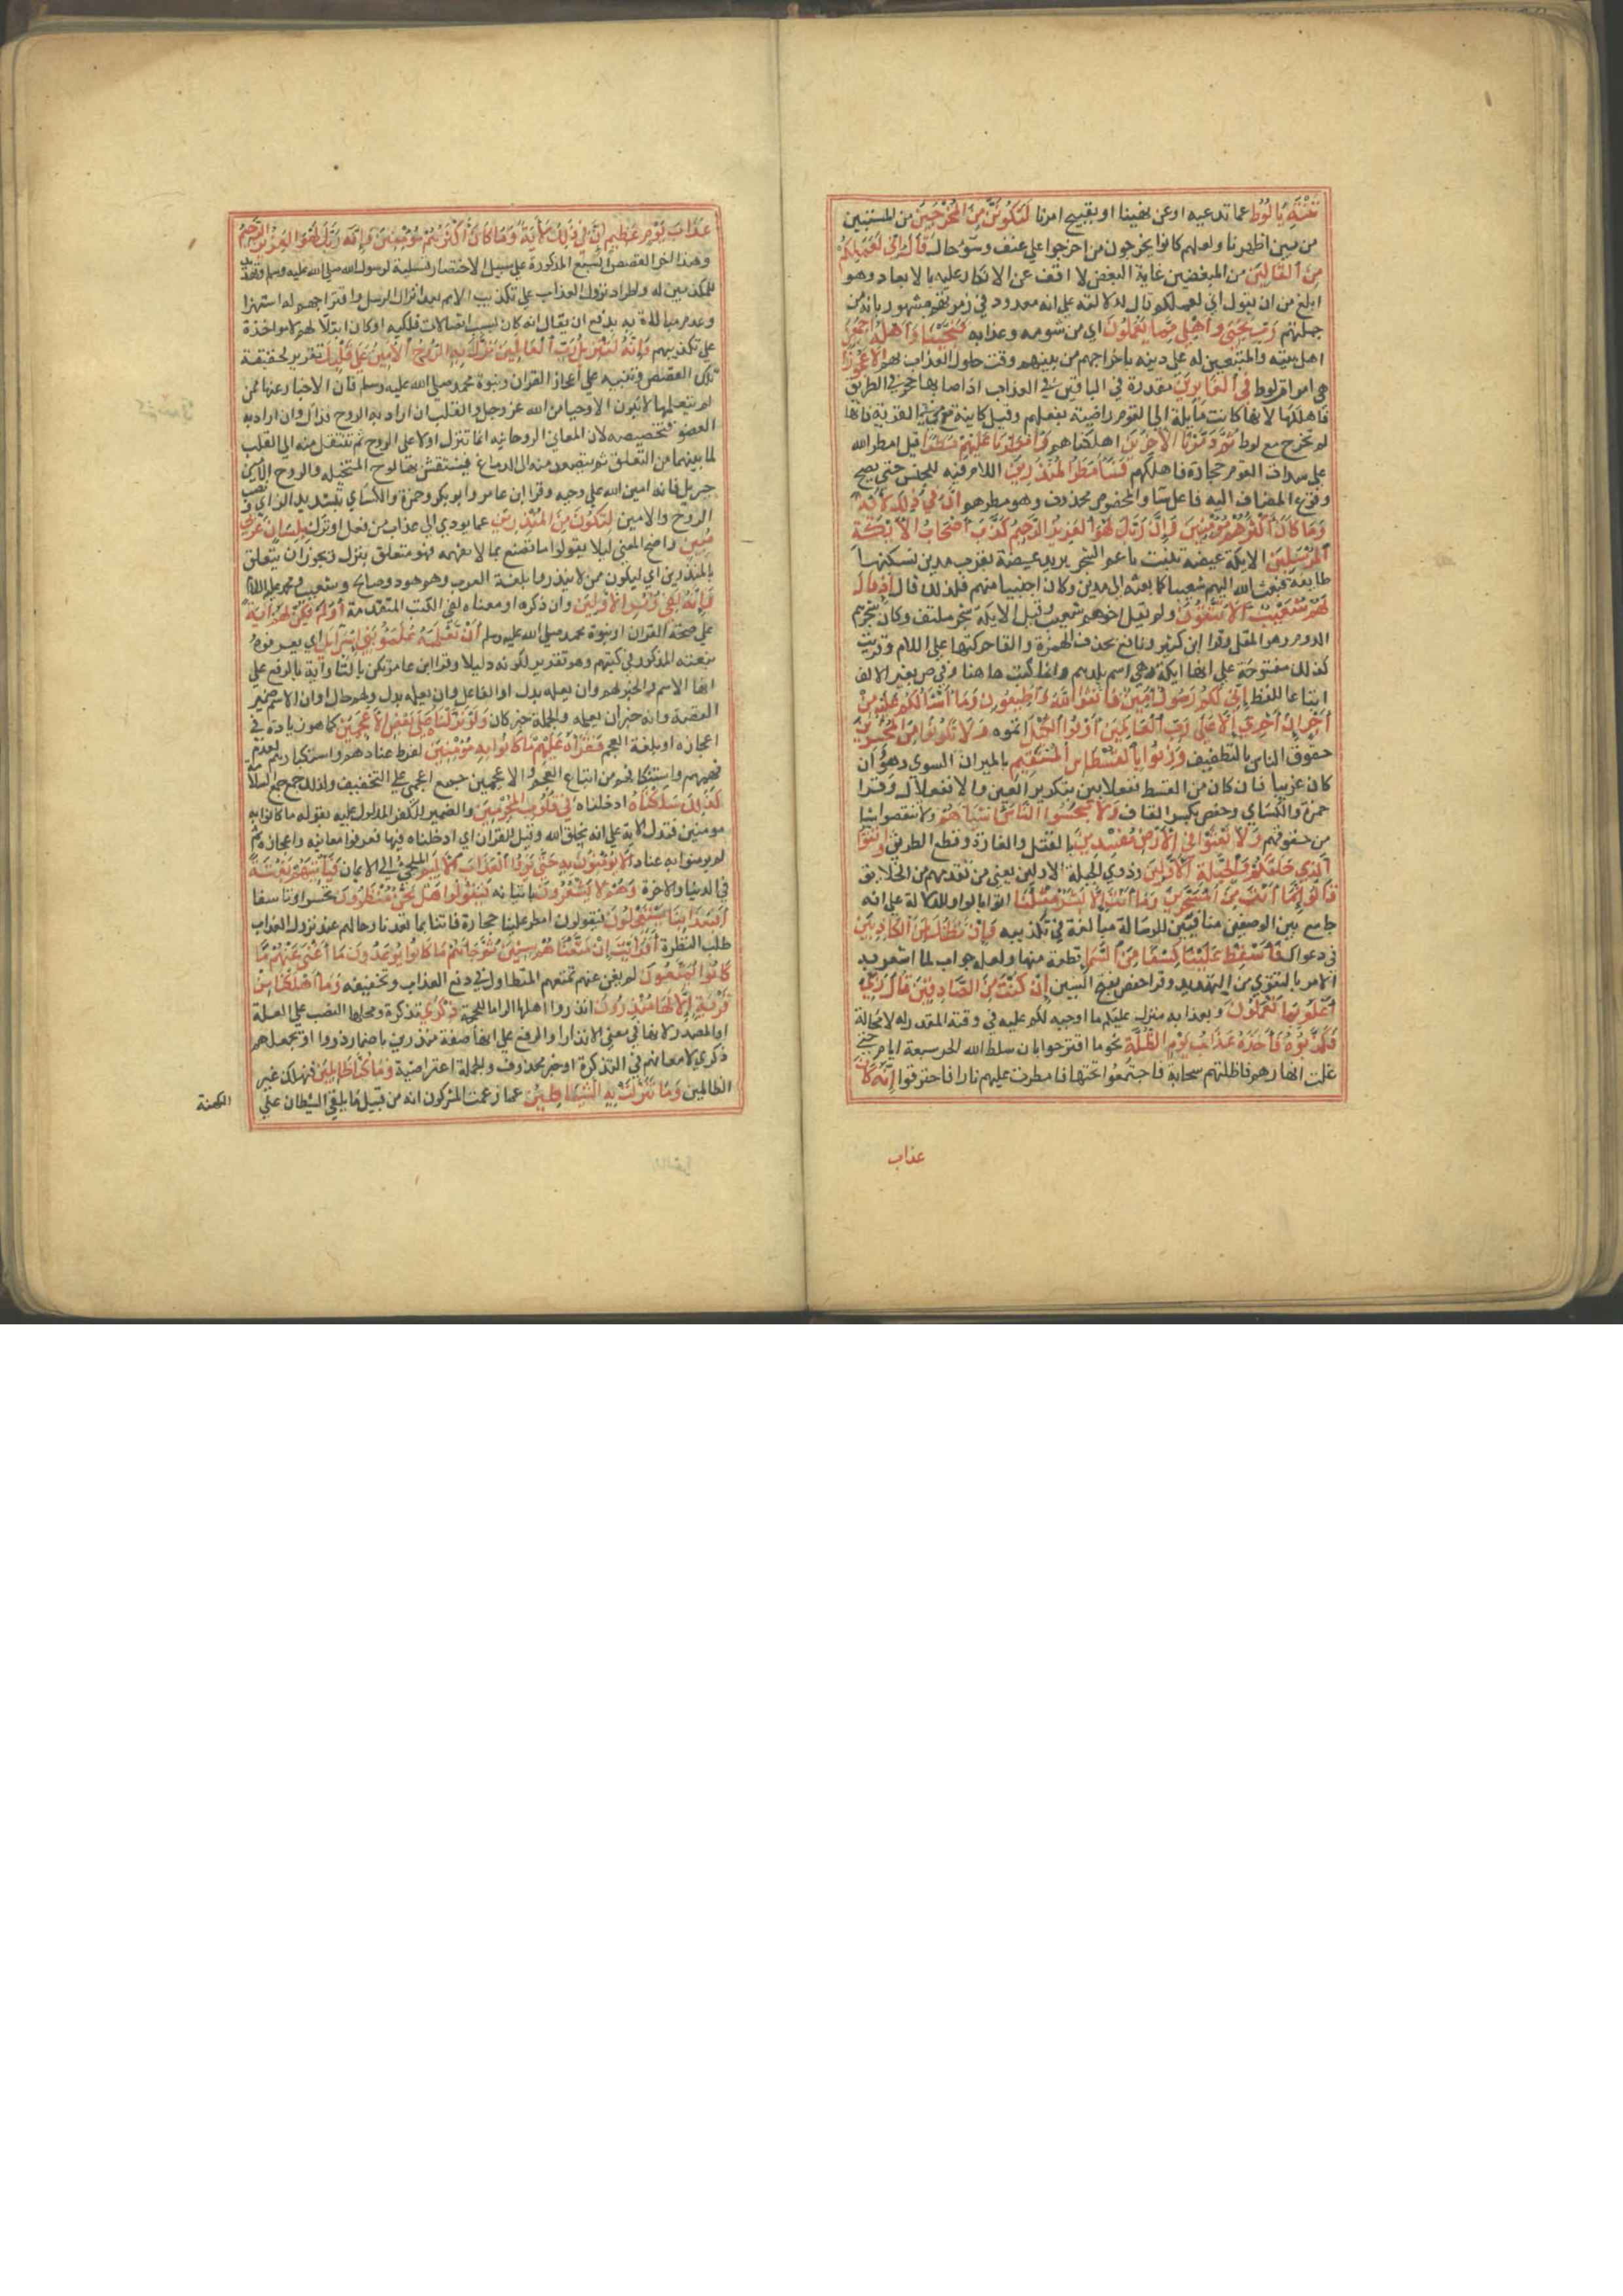 تنته يا لوط عما تدعيه اوعن نهينا او تقبيح امرنا لتكونن من المخرجين من المنفيين
من بين اظهرنا ولعلهم كانوا يخرجون من اخرجوا علي عنف وسوء حال قال اني لعملكم
من القالين من المبغضين غاية البغض لا اقف عن الانكار عليه بالابعاد وهو
ابلغ من ان يقول اني لعملكم قال لدلالته علي انه معدود في زمرتهم مشهور بانه من
جملتهم رب نجني واهلي مما يعملون اي من شومه وعذابه فنجيناه واهله اجمعين
اهل بيته والمتبعين له علي دينه باخراجهم من بينهم وقت حلول العذاب بهم الا عجوزا
هي امراة لوط في الغابرين مقدرة في الباقين في العذاب اذ اصابها حجر في الطريق
فاهلكها لانها كانت مايلة الي القوم راضية بفعلهم وقيل كاينة فيمن بقي في القرية فانها
لم تخرج مع لوط ثم دمرنا الاخرين اهلكناهم وامطرنا عليهم مطرا قيل امطر الله
علي شذاذ القوم حجارة فاهلكهم فساء مطر المنذرين اللام فيه للجنس حتي يصح
وقوع المضاف اليه فاعل ساء والمخصوص محذوف وهو مطرهم ان في ذلك لاية
وما كان اكثرهم مومنين وان ربك لهو العزيز الرحيم كذب اصحاب الايكة
المرسلين الايكة غيضة تنبت ناعم الشجر يريد غيضة بقرب مدين تسكنها
طايفة فبعث الله اليهم شعيبا كما بعثه الي مدين وكان اجنبيا منهم فلذلك قال اذ قال
لهم شعيب الا تتقون ولم يقل اخوهم شعيب وقيل الايكة شجر ملتف وكان شجرهم
الدوم وهو المقل وقرا ابن كثير ونافع بحذف الهمزة والقا حركتها علي اللام وقريت
كذلك مفتوحة علي انها ليكة وهي اسم بلدهم وانما كتبت هاهنا وفي ص بغير الالف
اتباعا للفظ اني لكم رسول امين فاتقوا الله واطيعون وما اسالكم عليه من
اجر ان اجري الا علي رب العالمين اوفوا الكيل اتموه ولا تكونوا من المخسرين
حقوق الناس بالتطفيف وزنوا بالقسطاس المستقيم بالميزان السوي وهو ان
كان عربيا فان كان من القسط ففعلاس بتكرير العين والا ففعلال وقرا
حمزة والكساي وحفص بكسر القاف ولا تبخسوا الناس اشياهم ولا تنقصوا شيا
من حقوقهم ولا تعثوا في الارض مفسدين بالقتل والغارة وقطع الطريق واتقوا
الذي خلقكم والجبلة الاولين وذوي الجبلة الاولين يعني من تقدمهم من الخلايق
قالوا انما انت من المسحرين وما انت الا بشر مثلنا اتوا بالواو للدلالة علي انه
جامع بين الوصفين منافيين للرسالة مبالغة في تكذيبه وان نظنك لمن الكاذبين
في دعواك فاسقط علينا كسفا من السما قطعة منها ولعله جواب لما اشعر به
الامر بالتقوي من التهديد وقرا حفص بفتح السين ان كنت من الصادقين قال ربي
اعلم بما تعملون وبعذابه منزل عليكم ما اوجبه لكم عليه في وقته المقدر له لا محالة
فكذبوه فاخذهم عذاب يوم الظلة علي نحو ما اقترحوا بان سلط الله الحر سبعة ايام حتي
غلت انهارهم فاظلتهم سحابة فاجتمعوا تحتها فامطرت عليهم نارا فاحترقوا انه كان
عذاب
عذاب يوم عظيم ان في ذلك لاية وما كان اكثرهم مومنين وان ربك لهو العزيز الرحيم
وهذا اخر القصص السبع المذكورة علي سبيل الاختصار تسلية لرسول الله صلي الله عليه وسلم وتهديدا
للمكذبين له واطراد نزول العذاب علي تكذيب الامم بعد انذار الرسل واقتراحهم له استهزا
وعدم مبالاة به يدفع ان يقال انه كان بسبب اتصالات فلكية او كان ابتلا لهم لا مواخذة
علي تكذيبهم وانه لتنزيل رب العالمين نزل به الروح الامين علي قلبك تقرير لحقيقة
تلك القصص وتنبيه علي اعجاز القران ونبوة محمد صلي الله عليه وسلم فان الاخبار عنها ممن
لم يتعلمها لا يكون الا وحيا من الله عز وجل والقلب ان اراد به الروح فذاك وان اراد به
العضو فتخصيصه لان المعاني الروحانية انما تنزل اولا علي الروح ثم تنتقل منه الي القلب
لما بينهما من التعلق ثم يتصعد منه الي الدماغ فينتقش بها لوح المتخيلة والروح الامين
جبريل فانه امين الله علي وحيه وقرا ابن عامر وابو بكر وحمزة والكساي بتشديد الزاي ونصب
الروح والامين لتكون من المنذرين عما يودي الي عذاب من فعل او ترك بلسان عربي
مبين واضح المعني ليلا يقولوا ما نصنع بما لا نفهمه فهو متعلق بنزل ويجوز ان يتعلق
بالمنذرين اي ليكون ممن انذروا بلغة العرب وهم هود وصالح وشعيب ومحمد عليهم السلام
وانه لفي زبر الاولين وان ذكره او معناه لفي الكتب المتقدمة اولم يكن لهم اية
علي صحة القران او نبوة محمد صلي الله عليه وسلم ان يعلمه علمؤا بني اسرايل اي يعرفوه
بنعته المذكور في كتبهم وهو تقرير لكونه دليلا وقرا ابن عامر تكن بالتا واية بالرفع علي
انها الاسم والخبر لهم وان يعلمه بدل او الفاعل وان يعلمه بدل ولهم حال او ان الاسم ضمير
القصة واية خبر ان يعلمه والجملة خبر كان ولو نزلناه علي بعض الاعجمين كما هو زيادة في
اعجازه او بلغة العجم فقراه عليهم ما كانوا به مومنين لفرط عنادهم واستكبارهم لعدم
فهمهم واستنكافهم من اتباع العجم والاعجمين جمع اعجمي علي التخفيف ولذلك جمع جمع السلامة
كذلك سلكناه ادخلناه في قلوب المجرمين والضمير للكفر المدلول عليه بقوله ما كانوا به
مومنين فتدل الاية علي انه بخلق الله وقيل للقران اي ادخلناه فيها فعرفوا معانيه واعجازه ثم
لم يومنوا به عنادا لا يومنون به حتي يروا العذاب الاليم الملجئ الي الايمان فياتيهم بغتة
في الدنيا والاخرة وهم لا يشعرون باتيانه فيقولوا هل نحن منظرون تحسرا وتاسفا
افبعذابنا يستعجلون فيقولون امطر علينا حجارة فاتنا بما تعدنا وحالهم عند نزول العذاب
طلب النظرة افرايت ان متعناهم سنين ثم جاهم ما كانوا يوعدون ما اغني عنهم ما
كانوا يمتعون لم يغن عنهم تمتعهم المتطاول في دفع العذاب وتخفيفه وما اهلكنا من
قرية الا لها منذرون انذروا اهلها الزاما للحجة ذكري تذكرة ومحلها النصب علي العلة
او المصدر لانها في معني الانذار او الرفع علي انها صفة منذرون باضمار ذووا او بجعلهم
ذكري لامعانهم في التذكرة او خبر محذوف والجملة اعتراضية وما كنا ظالمين فنهلك غير
الظالمين وما تنزلت به الشياطين عما زعمت المشركون انه من قبيل ما يلقي الشيطان علي
الكهنة